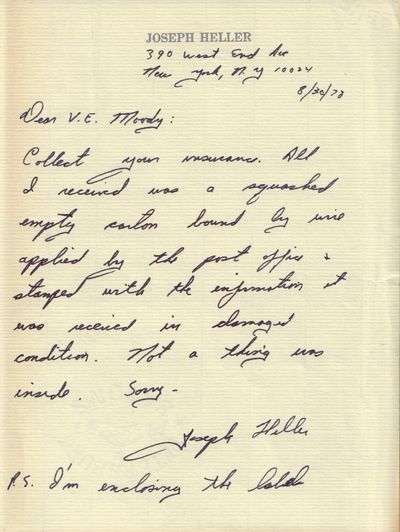 JOSEPH HELLER
390 West End Ave
New York, N.Y 10024
8/30/73
Dear V.E. Moody:
Collect your insurance. All
I received was a squashed
empty carton bound by wire
applied by the post office &
stamped with the information it
was received in damaged
condition. Not a thing was
inside. Sorry -
Joseph Heller
P.S. I'm enclosing the labels